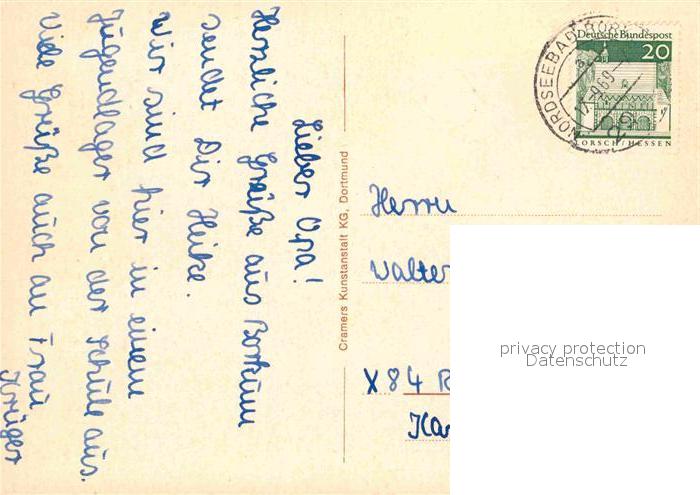 Lieber Opa!
Herzliche Grüße aus Borkum
sendet Dir Heike.
Wir sind hier in einem
Jugendlager von der Schule aus.
Viele Grüße auch an Frau
Krüger
Cramers Kunstanstalt KG, Dortmund
NORDSEEBAD
9.69
Deutsche Bundespost
20
LORSCH/HESSEN
Herrn
Walter
X 84
privacy protection
Datenschutz